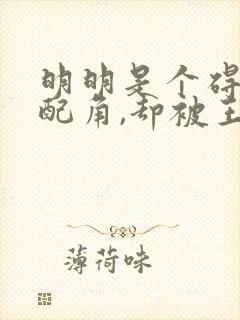 明明是个碍
配角,却被主
薄荷味